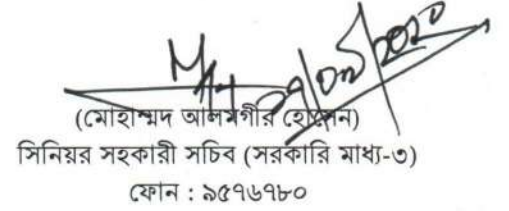 ২৭/০৮/২০২০
(মোহাম্মদ আলমগীর হোসেন)
সিনিয়র সহকারী সচিব (সরকারি মাধ্য-৩)
ফোন : ৯৫৭৬৭৮০